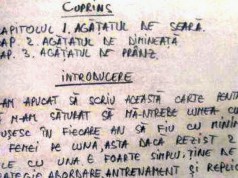 CUPRINS
CAPITOLUL 1. AGĂȚATUL DE SEARĂ.
CAP. 2. AGĂȚATUL DE DIMINEAȚĂ
CAP. 3. AGĂȚATUL DE PRÂNZ.
INTRODUCERE
M-AM APUCAT SĂ SCRIU ACEASTĂ CARTE PENTRU
M-AM SĂTURAT SĂ MĂ-NTREBE LUMEA CUM
UȘESC ÎN FIECARE AN SĂ FIU CU MINIM
FEMEI PE LUNĂ, ASTA DACĂ REZIST 2
LE CU UNA. E FOARTE SIMPLU, ȚINE DE
ATEGIE, ABORDARE, ANTRENAMENT ȘI REPLIC